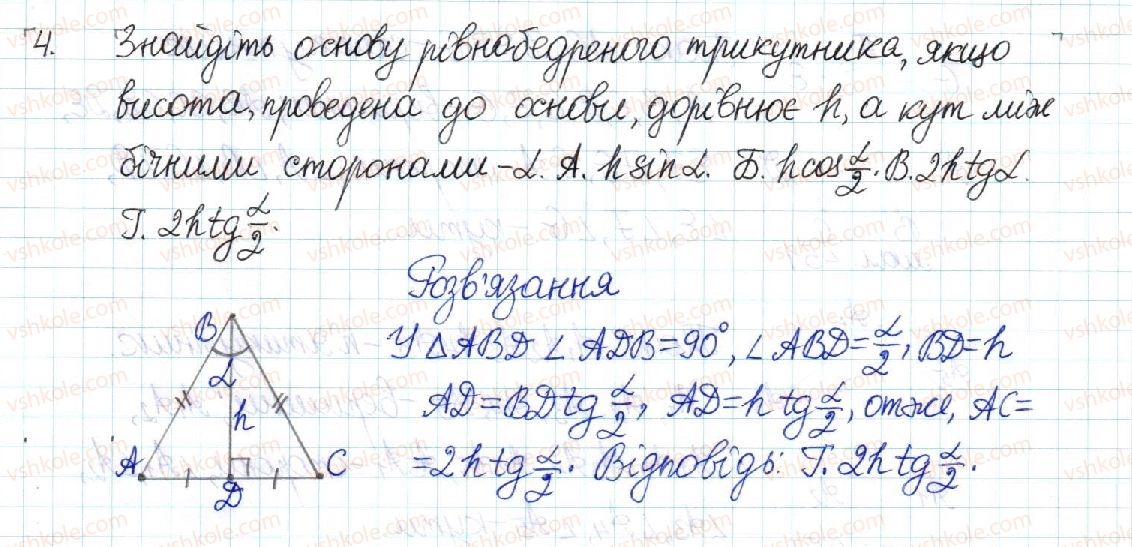 4. Знайдіть основу рівнобедреного трикутника, якщо
висота, проведена до основи, дорівнює h, а кут між
бічними сторонами - α. А. h sin α. Б. h cos α/2. В. 2h tg α.
Г. 2h tg α/2.
Розв'язання
У △ABD ∠ADB = 90°, ∠ABD = α/2, BD = h
AD = BD tg α/2, AD = h tg α/2, отже, AC =
= 2h tg α/2. Відповідь: Г. 2h tg α/2.
B
α
h
A
D
C
vshkole.com